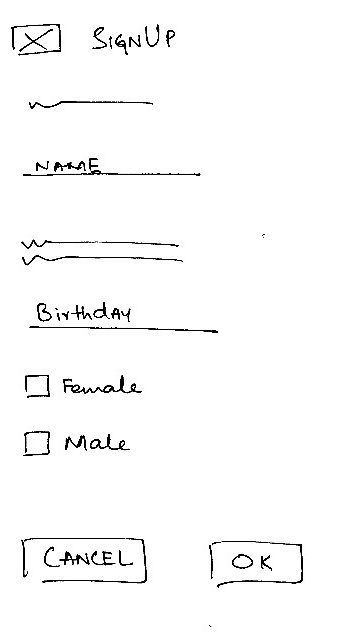 SIGNUP
NAME
Birthday
Female
Male
CANCEL
OK